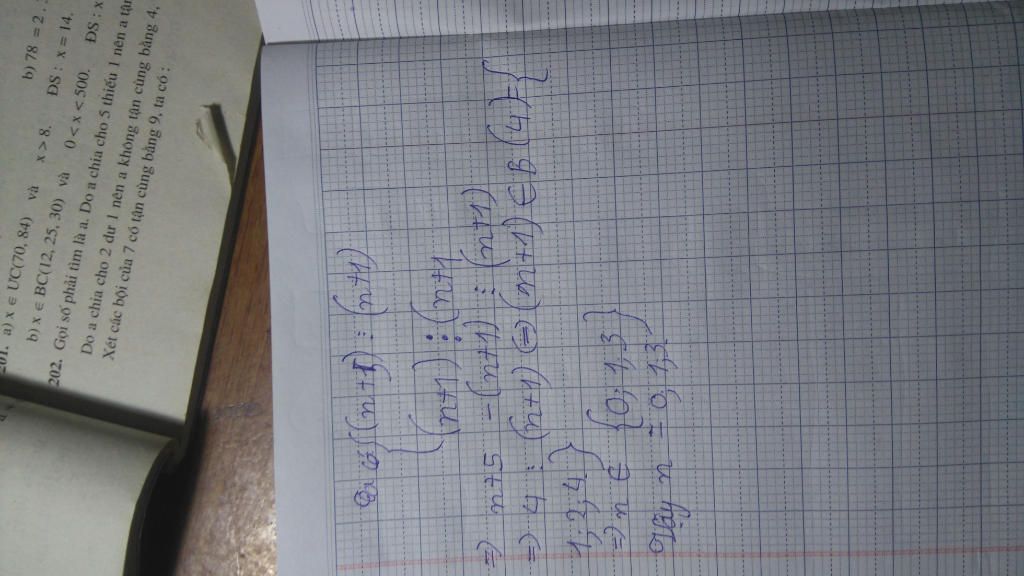 201. a) x ∈ ƯC(70, 84) và x > 8. ĐS : x = 14.
b) x ∈ BC(12, 25, 30) và 0 < x < 500. ĐS : x
202. Gọi số phải tìm là a. Do a chia cho 5 thiếu 1 nên a tận
Do a chia cho 2 dư 1 nên a không tận cùng bằng 4,
Xét các bội của 7 có tận cùng bằng 9, ta có :
b) 78 = 2 .
{ (n+5) ⋮ (n+1)
(n+1) ⋮ (n+1
=> n+5 - (n+1) ⋮ (n+1)
=> 4 ⋮ (n+1) <=> (n+1) ∈ B (4) = {
1; 2; 4 }
=> n ∈ {0; 1; 3}
Vậy n = 0, 1, 3